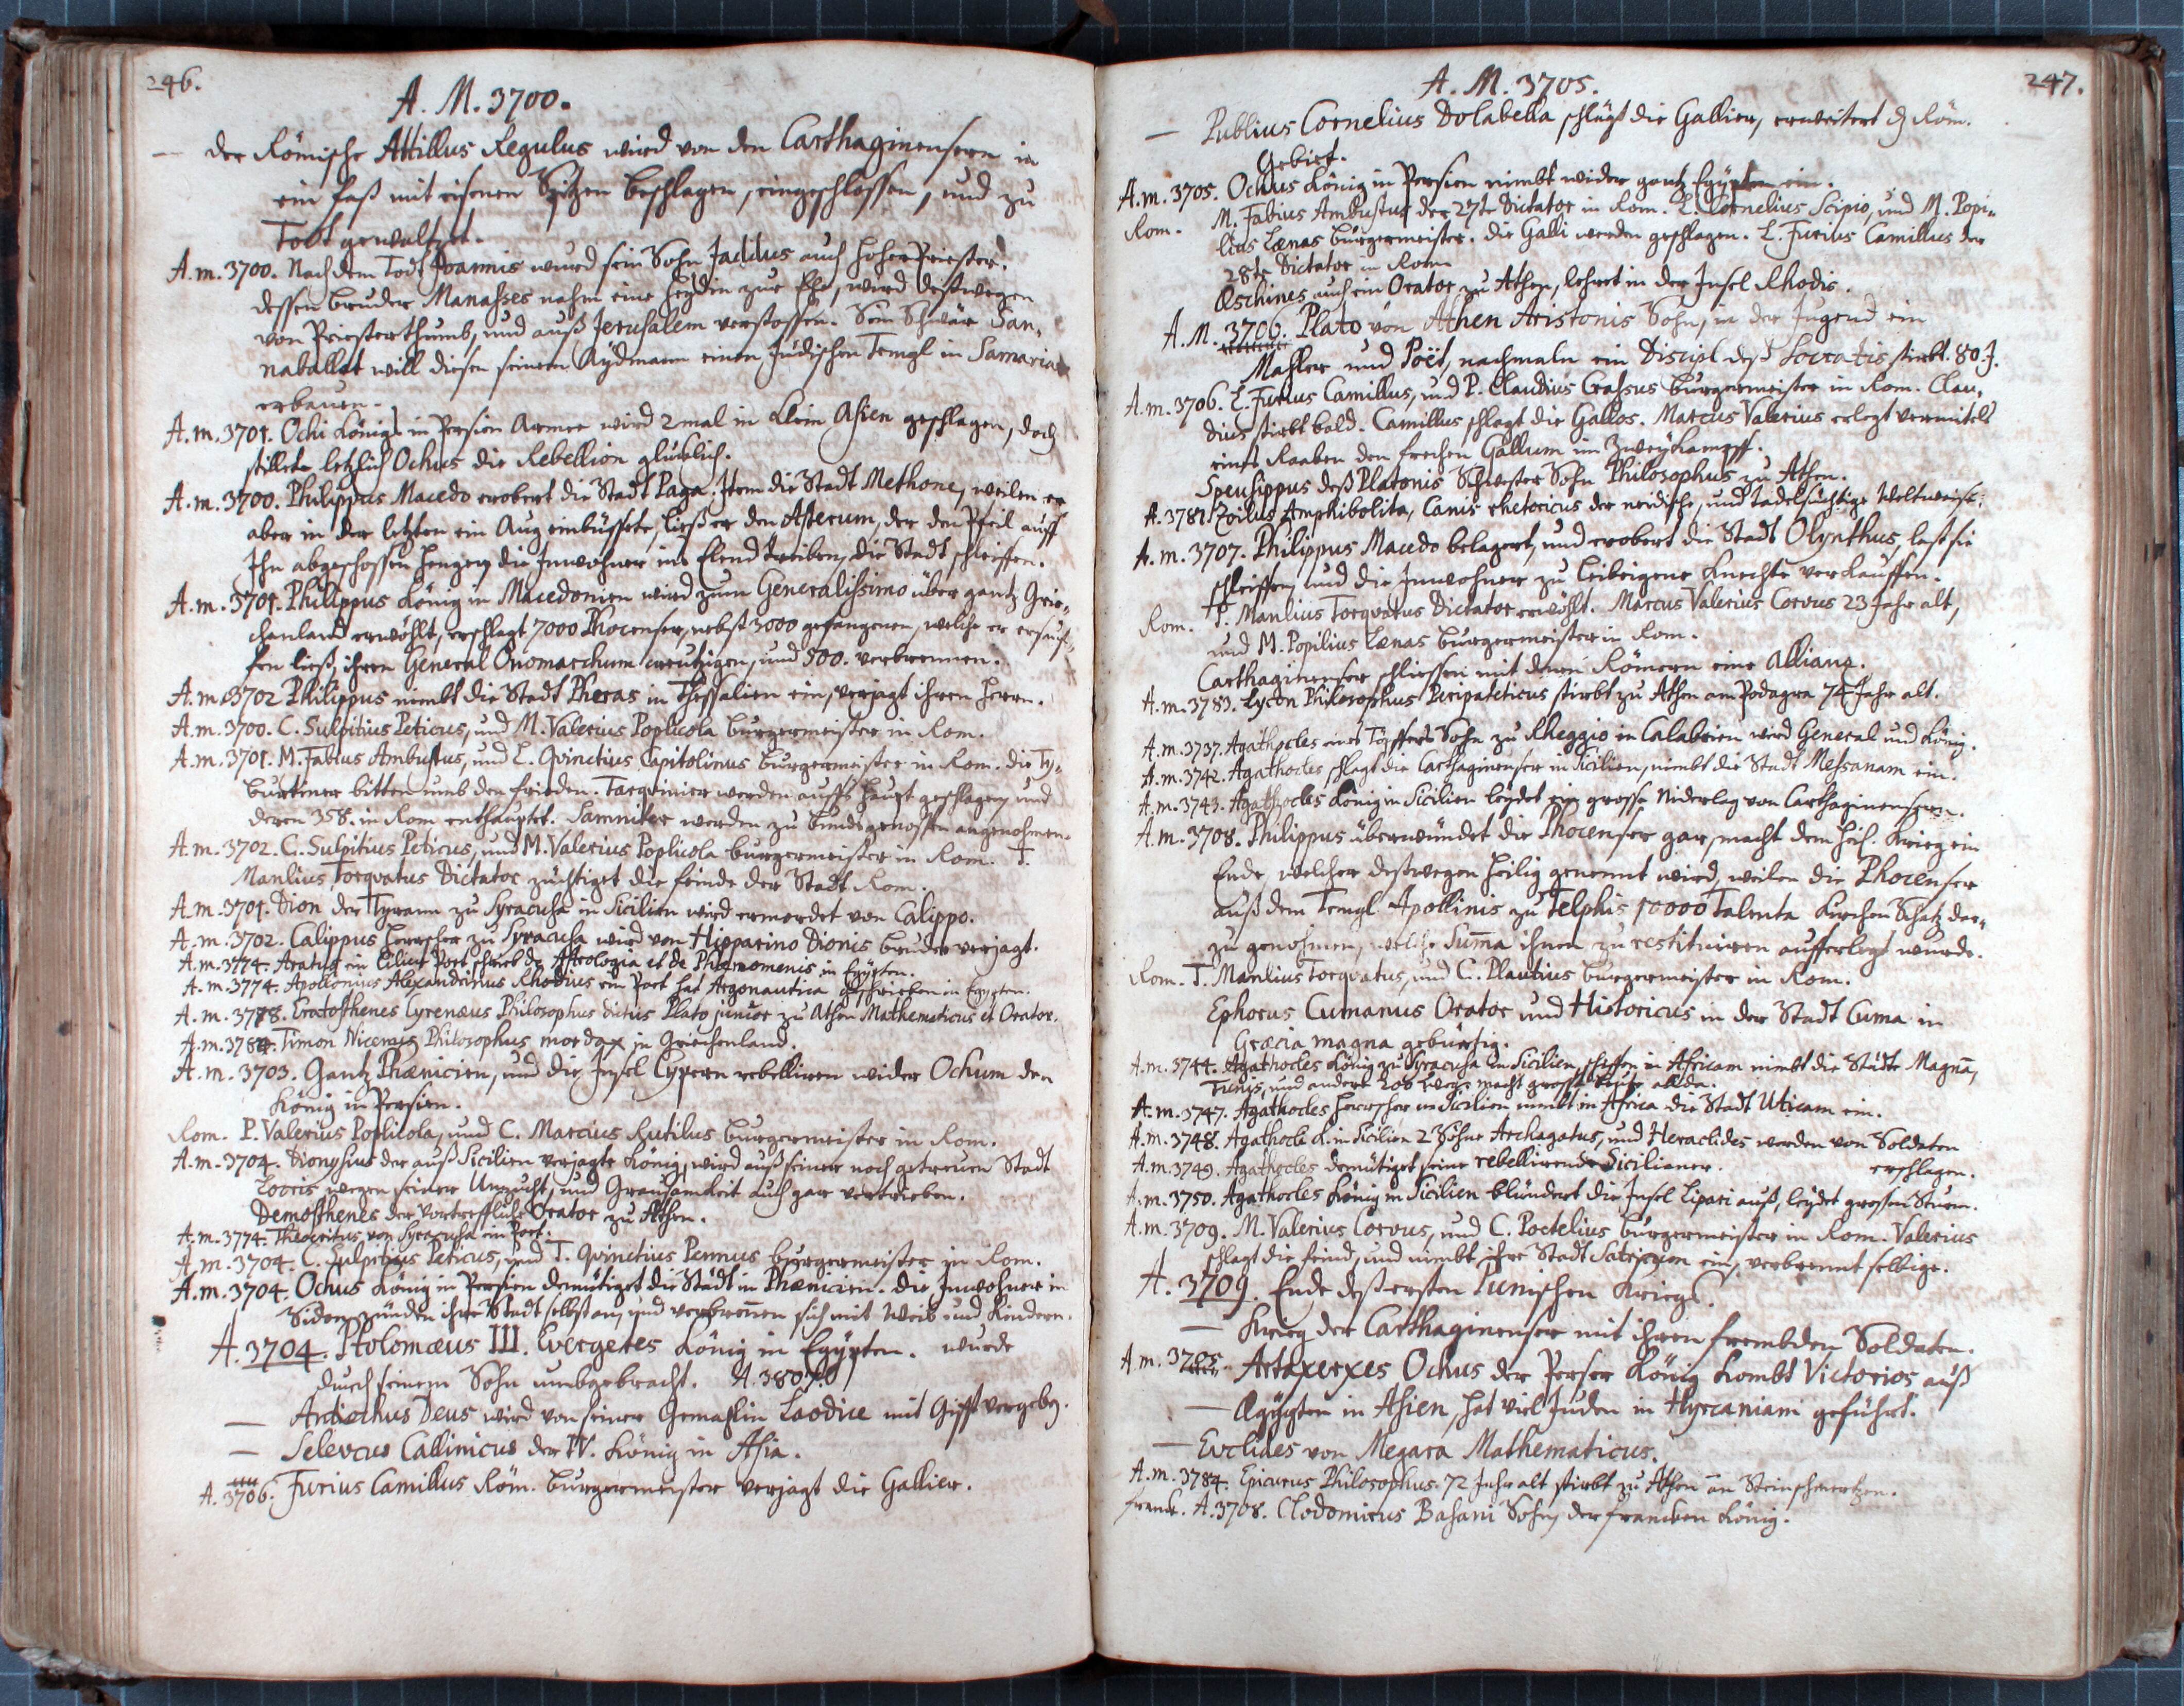 246.
A. M. 3700.
— der Römische Attillus Regulus wird von den Carthaginensern in
ein faß mit eisenen Spitzen beschlagen, eingeschlossen, und zu
Todt gewaltzet.
A. m. 3700. Nach dem Todt Joannis wurd sein Sohn Jaddus auch hoher Priester.
dessen bruder Manasses nahm eine heydin zur Ehe, wird deßwegen
von Priesterthumb, und auß Jerusalem verstossen. Sein Schwär San-
naballat will diesen seinem Aydmann einen Judischen Templ in Samaria
erbauen.
A. m. 3701. Ochi Königs in Persien Armee wird 2 mal in klein Asien geschlagen, doch
stillete letzlich Ochus die Rebellion glücklich.
A. m. 3700. Philippus Macedo erobert die Stadt Paga. Item die Stadt Methone, weilen er
aber in der letzten ein Aug einbüssete, ließ er den Asterum, der den Pfeil auff
Ihn abgeschossen hengen, die Inwohner ins Elend treiben, die Stadt schleiffen.
A. m. 3701. Philippus König in Macedonien wird zum Generalissimo über gantz Grie-
chenland erwöhlt, erschlagt 7000 Phocenser, nebst 3000 gefangenen, welche er ersauf-
fen ließ, ihren General Onomarchum creutzigen, und 500. verbrennen.
A. m. 3702 Philippus nimbt die Stadt Pheras in Thessalien ein, verjagt ihren herrn.
A. m. 3700. C. Sulpitius Peticus, und M. Valerius Poplicola burgermeister in Rom.
A. m. 3701. M. Fabius Ambustus, und L. Qvinctius Capitolinus burgermeister in Rom. die Ty-
burtiner bitten umb den frieden. Tarqvinier werden auffs haupt geschlagen, und
deren 358. in Rom enthauptet. Samniter werden zu bundsgenossen angenohmen.
A. m. 3702. C. Sulpitius Peticus, und M. Valerius Poplicola burgermeister in Rom. T.
Manlius Torqvatus Dictator züchtiget die feinde der Stadt Rom.
A. m. 3701. Dion der Tyrann zu Syracusa in Sicilien wird ermordet von Calippo.
A. m. 3702. Calippus herrscher zu Syracusa wird von Hipparino Dionis bruder verjagt.
A. m. 3774. Aratus ein Cilicus Poet schrieb de Astrologia et de Phænomenis in Egypten.
A. m. 3774. Apollonius Alexandrinus Rhodius ein Poet hat Argonautica geschrieben in Egypten.
A. m. 3778. Eratosthenes Cyrenæus Philosophus dictus Plato junior zu Athen Mathematicus et Orator.
A. m. 3780. Timon Nicenus Philosophus mordax in Griechenland.
A. m. 3703. Gantz Phænicien, und die Insel Cypern rebelliren wider Ochum den
König in Persien.
Rom. P. Valerius Poplicola, und C. Marcius Rutilus burgermeister in Rom.
A. m. 3704. Dionysius der auß Sicilien verjagte König, wird auß seiner noch getreuen Stadt
Locris wegen seiner Unzucht, und Grausamkeit auch gar vertrieben.
Demosthenes der Vortreffliche Orator zu Athen.
A. m. 3774. Theocritus von Syracusa ein Poet.
A. m. 3704. C. Sulpitius Peticus, und T. Qvinctius Pennus burgermeister in Rom.
A. m. 3704. Ochus König in Persien demütiget die Städt in Phænicien. die Inwohner in
Sidon zünden ihre Stadt selbst an, und verbrenen sich mit Weib und Kindern.
A. 3704. Ptolomæus III. Evergetes König in Egypten. wurde
durch seinem Sohn umbgebracht. A. 3807.
— Antiochus Deus wird von seiner Gemahlin Laodice mit Gifft vergeben.
— Selevcus Callinicus der IV. König in Asia.
A. 3706. Furius Camillus Röm. burgermeister verjagt die Gallier.
247.
A. M. 3705.
— Publius Cornelius Dolabella schlägt die Gallier, erweitert dz Röm.
Gebiet.
A. m. 3705. Ochus König in Persien nimbt wider gantz Egypten ein.
Rom. M. Fabius Ambustus der 27te Dictator in Rom. L. Cornelius Scipio, und M. Popi-
lius Lænas burgermeister. die Galli werden geschlagen. L. Furius Camillus der
28te Dictator in Rom
Æschines auch ein Orator zu Athen, lehret in der Insel Rhodis.
A. M. 3706. Plato von Athen Aristonis Sohn, in der Jugend ein
Mahler und Poët, nachmaln ein Discipl deß Socratis, stirbt. 80 J.
A. m. 3706. L. Furius Camillus, und P. Claudius Crassus burgermeister in Rom. Clau-
dius stirbt bald. Camillus schlagt die Gallos. Marcus Valerius erlegt vermitels
eines Raaben den frechen Gallum im Zweykampff.
Speusippus deß Platonis Schwester Sohn Philosophus zu Athen.
A. 3781. Zoilus Amphibolita, Canis rhetoricus der neidische, und tadelsüchtige Weltweise.
A. m. 3707. Philippus Macedo belagert, und erobert die Stadt Olynthus, last sie
schleiffen, und die Inwohner zu leibeigene Knechte verkauffen.
Rom. T. Manlius Torqvatus Dictator erwöhlt. Marcus Valerius Corvus 23 Jahr alt,
und M. Popilius Lænas burgermeister in Rom.
Carthaginenser schliessen mit denen Römern eine Allianz.
A. m. 3783. Lycon Philosophus Peripateticus stirbt zu Athen am Podagra 74 Jahr alt.
A. m. 3737. Agathocles eines Töpffers Sohn zu Rheggio in Calabrien wird General und König.
A. m. 3742. Agathocles schlagt die Carthaginenser in Sicilien, nimbt die Stadt Messanam ein.
A. m. 3743. Agathocles König in Sicilien leydet ein grosse Niderlag von Carthaginensern.
A. m. 3708. Philippus überwündet die Phocenser gar, macht dem heil. Krieg ein
Ende, welcher deßwegen heilig genennt wird, weilen die Phocenser
auß dem Templ Apollinis zu Delphis 10000 Talenta Kirchen Schatz dar-
zu genohmen, welche Suma ihnen zu restituiren aufferlegt wurde.
Rom. T. Manlius Torqvatus, und C. Plautius burgermeister in Rom.
Ephorus Cumanus Orator und Historicus in der Stadt Cuma in
Græcia magna gebürtig.
A. m. 3744. Agathocles König zu Syracusa in Sicilien, schiffen in Africam nimbt die Städte Magna,
Tunis, und andere 200 macht grosse beute allda.
A. m. 3747. Agathocles herrscher in Sicilien nimbt in Africa die Stadt Uticam ein.
A. m. 3748. Agathocli K. in Sicilien 2 Söhne Archagatus, und Heraclides werden von Soldaten
erschlagen.
A. m. 3749. Agathocles demütiget seine rebellirende Sicilianer.
A. m. 3750. Agathocles König in Sicilien blündert die Insel Lipari auß, leydet grossen Sturm.
A. m. 3709. M. Valerius Corvus, und C. Poetelius burgermeister in Rom. Valerius
schlagt die feind, und nimbt ihre Stadt Satricum ein, verbrennt selbige.
A. 3709. Ende deß ersten Punischen Kriegs.
— Krieg der Carthaginenser mit ihren frembden Soldaten.
A. m. 3705. Artaxerxes Ochus der Perser König kombt Victorios auß
— Ægypten in Asien, hat viel Juden in Hyrcaniam geführt.
— Evclides von Megara Mathematicus.
A. m. 3784. Epicurus Philosophus. 72 Jahr alt stirbt zu Athen an Steinschmertzen.
franck. A. 3708. Clodomirus Basani Sohn der francken König.